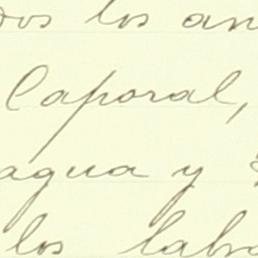 los an
Caporal,
agua y
los labo